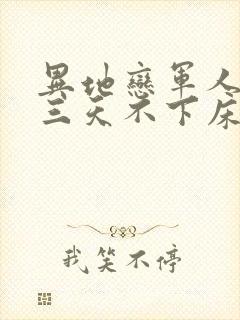 異地戀軍人
三天不下床
我笑不停